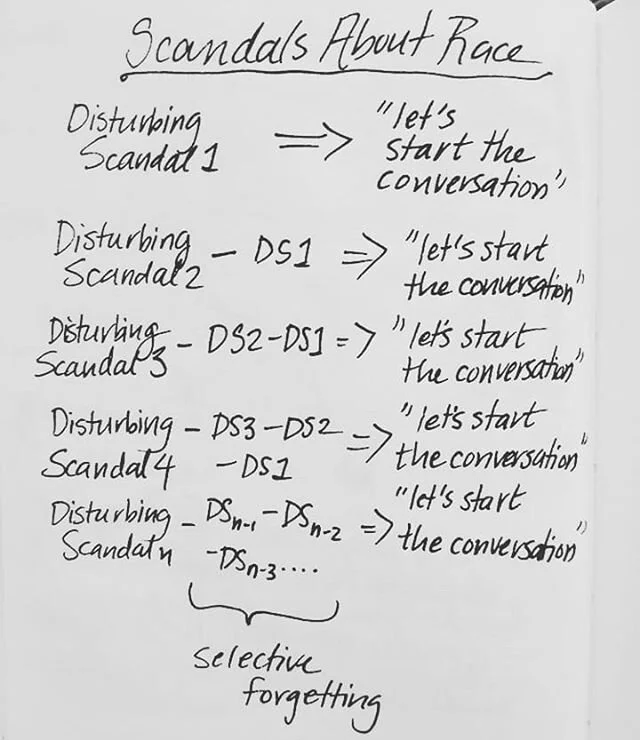 Scandals About Race
Disturbing Scandal 1 => "let's start the conversation"
Disturbing Scandal 2 - DS1 => "let's start the conversation"
Disturbing Scandal 3 - DS2 - DS1 => "let's start the conversation"
Disturbing Scandal 4 - DS3 - DS2 - DS1 => "let's start the conversation"
Disturbing Scandal n - DSn-1 - DSn-2 - DSn-3.... => "let's start the conversation"
selective
forgetting